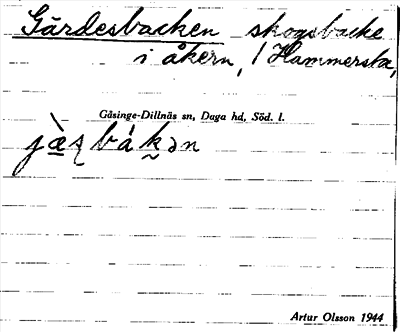 Gärdesbacken skogsbacke
i åkern, / Hammersta,
Gåsinge-Dillnäs sn, Daga hd, Söd. l.
Artur Olsson 1944